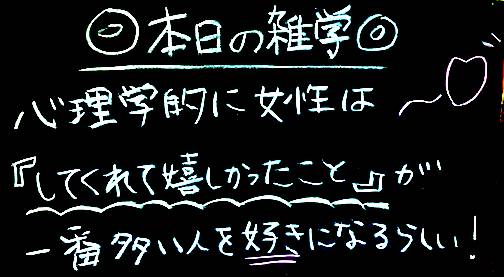 ◎本日の雑学◎
心理学的に女性は
『してくれて嬉しかったこと』が
一番多い人を好きになるらしい！